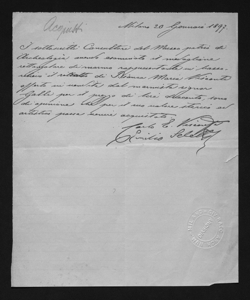 Acquisti
Milano 20 Gennaio 1897
I sottoscritti Consultori del Museo patrio di
Archeologia avendo esaminato il medaglione
rotondo di marmo rappresentante in basso
rilievo il ritratto di Bianca Maria Visconti
offerto in vendita dal signor
Galli per il prezzo di lire, sono
di opinione che per il suo valore storico ed
artistico possa essere acquistato
Carlo E. Visconti
Emilio Seletti